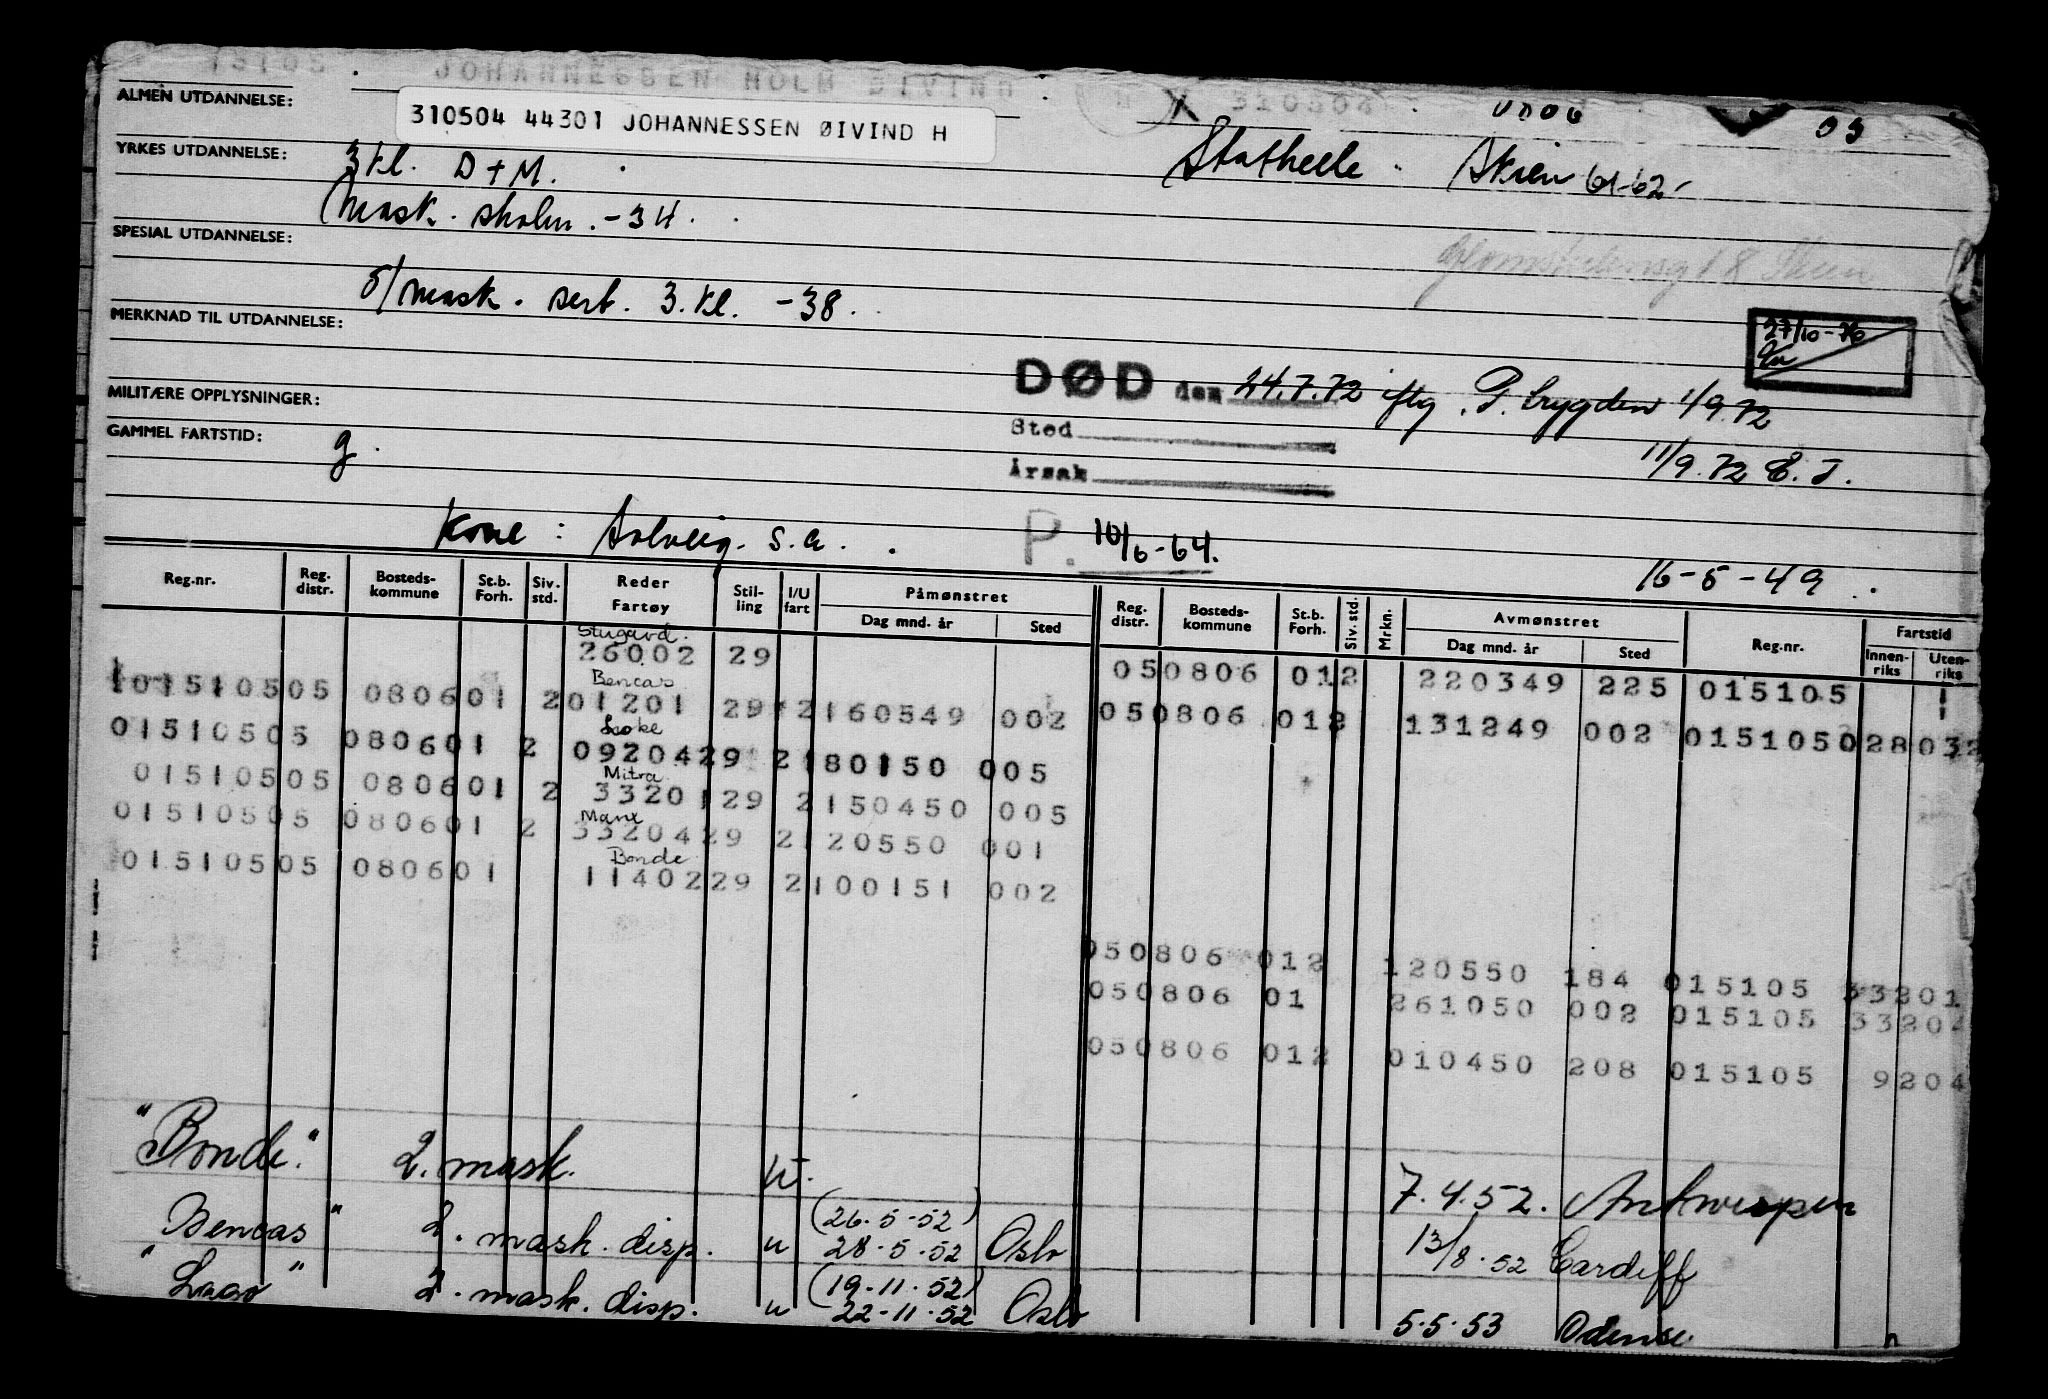 15105 JOHANNESSEN HOLM EIVIND H 310504 03
ALMEN UTDANNELSE:
310504 44301 JOHANNESSEN ØIVIND H
YRKES UTDANNELSE: 3 kl. D + M. Stathelle Skien 61-62
Mask. skolen. -34.
SPESIAL UTDANNELSE:
8 Skien
5/ mask. sert. 3. kl. -38.
MERKNAD TIL UTDANNELSE:
27/10-76
DØD den 24.7.72 iflg. P. trygden 1/9.72
MILITÆRE OPPLYSNINGER:
Sted
GAMMEL FARTSTID: g.
11/9.72 E. J.
Årsak
Kone: Solveig. s.a. P. 10/6-64.
16-5-49
Reg.nr. Reg. distr. Bosteds- kommune St.b. Forh. Siv. std. Reder Fartøy Stil- ling I/U fart Påmønstret Dag mnd. år Sted Reg. distr. Bosteds- kommune St.b. Forh. Siv. std. Mrkn. Avmønstret Dag mnd. år Sted Reg.nr. Fartstid Innen- riks Uten- riks
Stugard.
26002 29 050806 012 220349 225 015105
Bencas
101510505 080601 201201 29 2 160549 002 050806 012 131249 002 015105028032
Loke
01510505 080601 2 0920429 2180150 005
Mitra
01510505 080601 2 3320129 2150450 005
Manx
01510505 080601 2 3320429 2120550 001
Bonde
01510505 080601 1140229 2100151 002
050806 012 120550 184 015105 33201
050806 01 261050 002 015105 33204
050806 012 010450 208 015105 9204
"Bonde." 2. mask. u. 7.4.52. Antwerpen
(26.5-52)
Bencas" 2. mask. disp. u 28.5.52 Oslo 13/8.52 Cardiff
(19-11.52)
"Lago" 2. mask. disp. u 22-11.52 Oslo 5.5.53 Odense